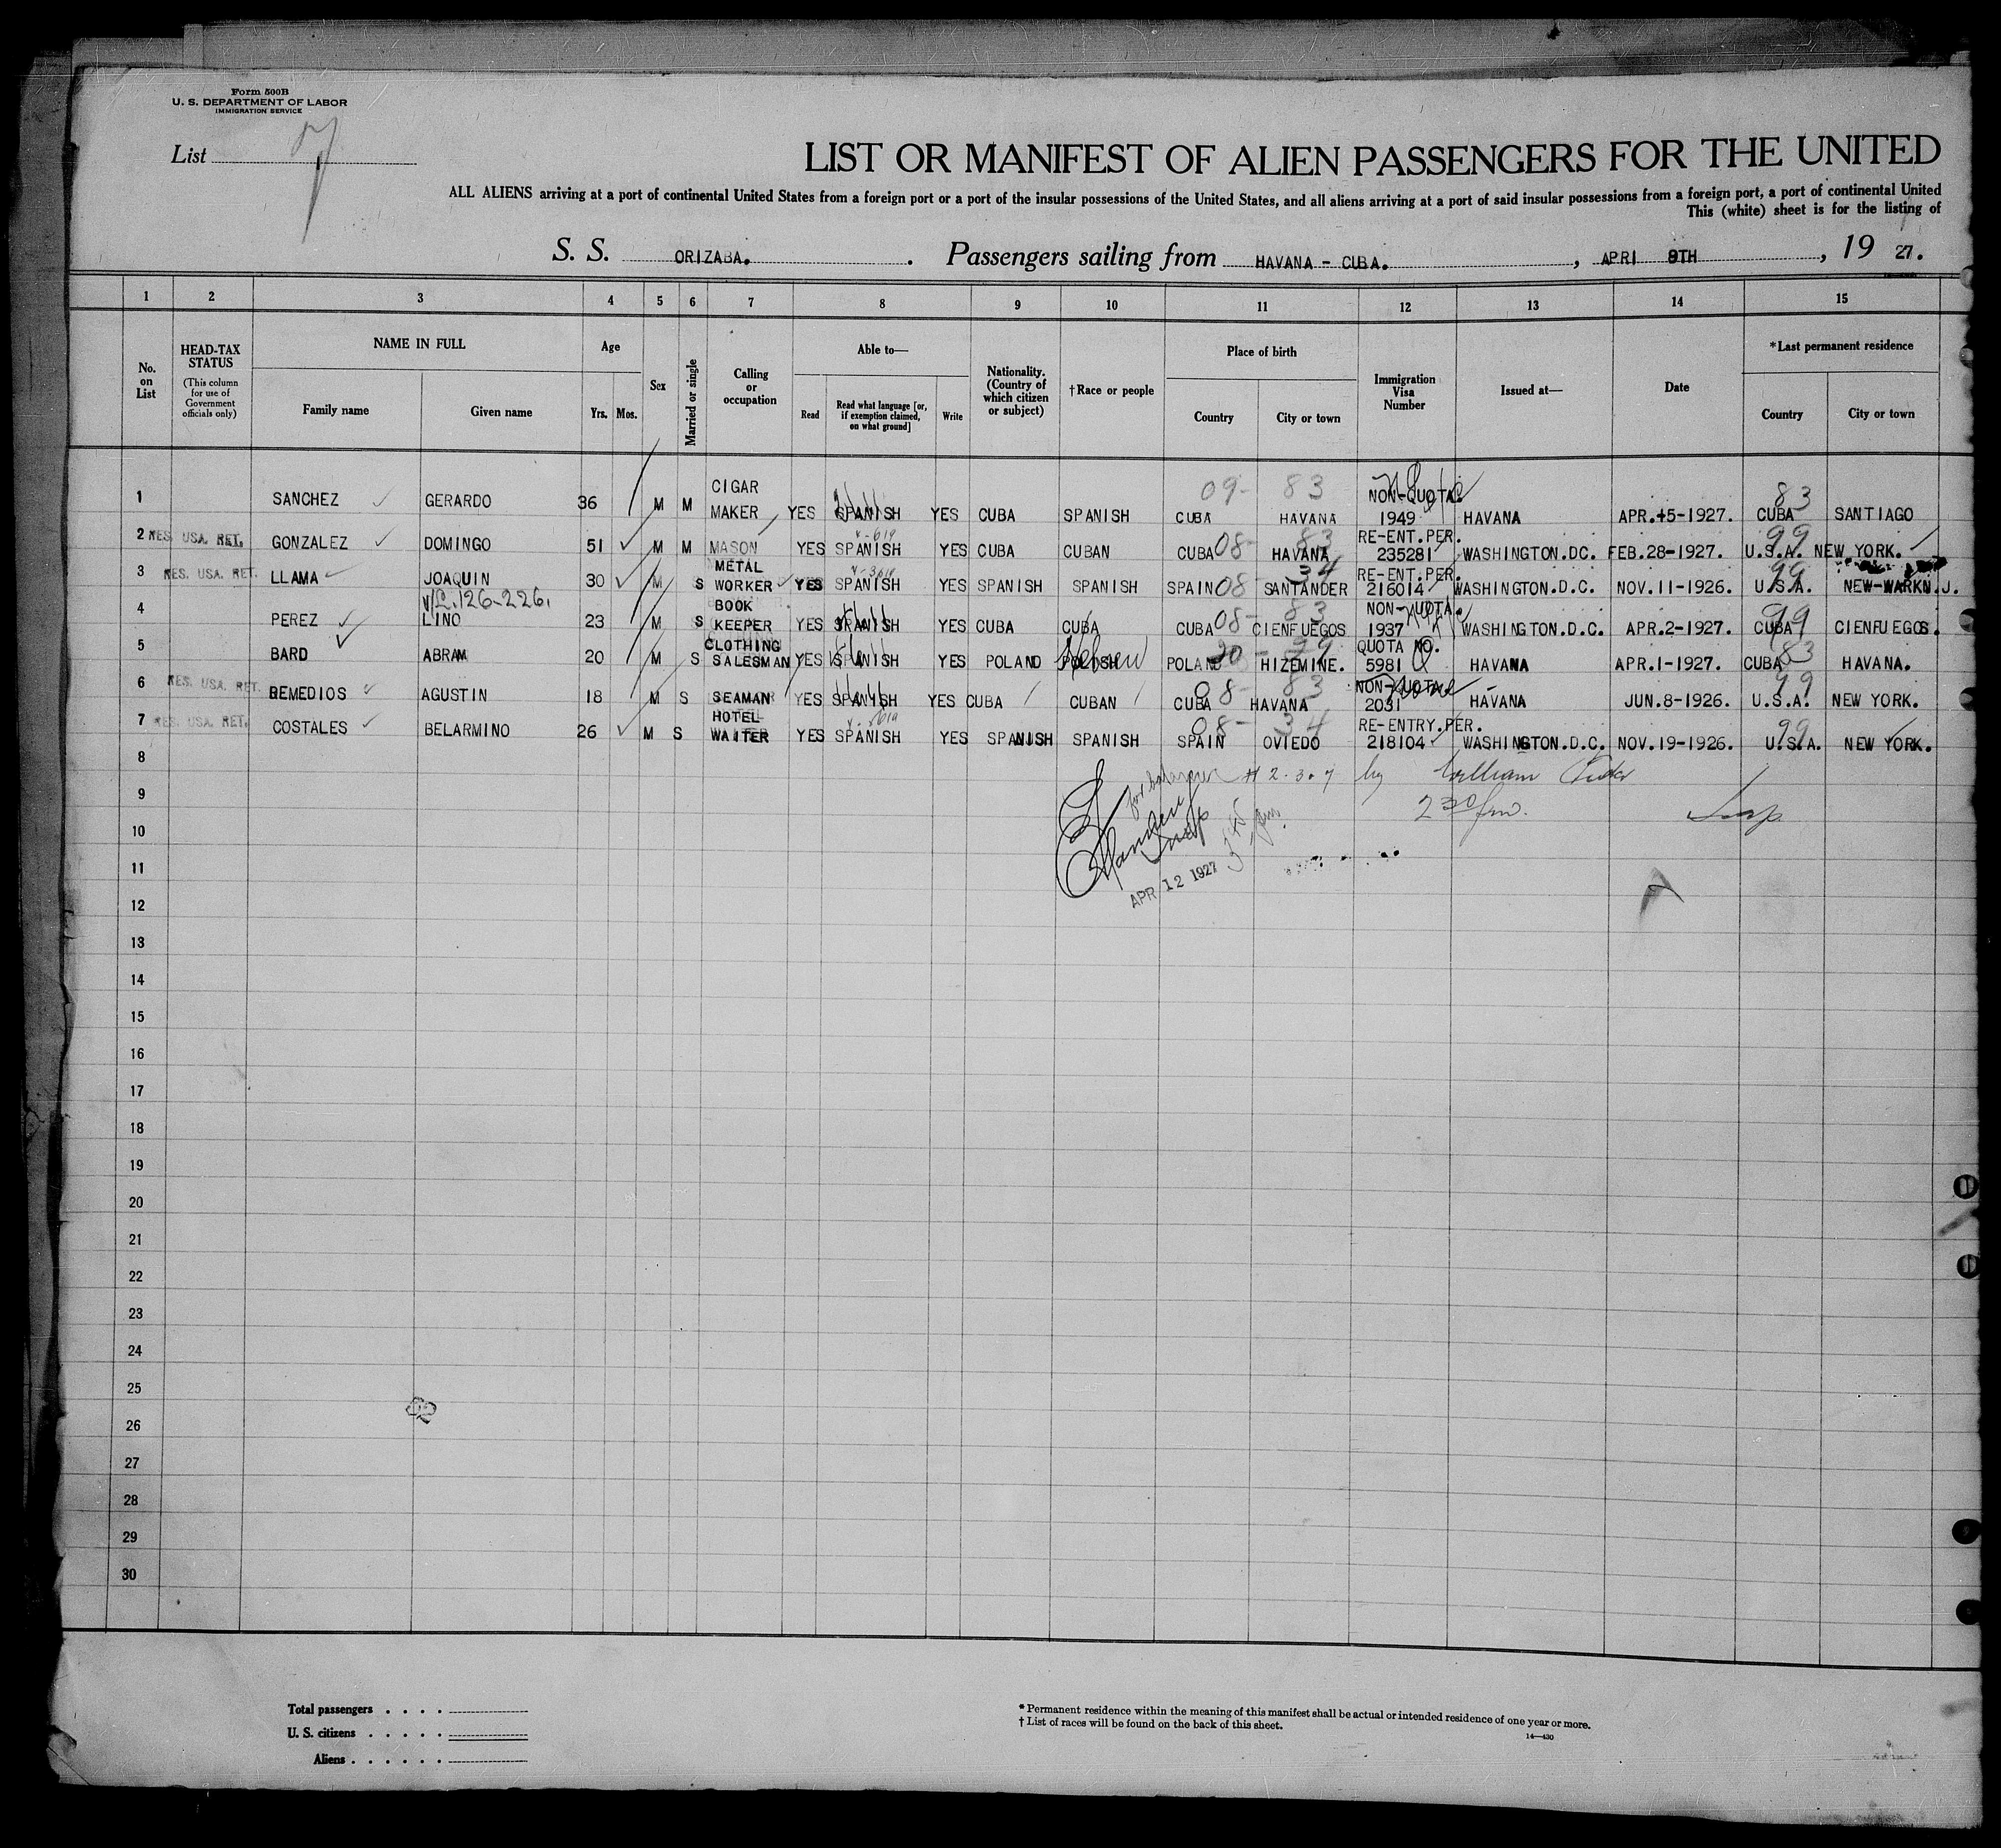 Form 500B
U. S. DEPARTMENT OF LABOR
IMMIGRATION SERVICE
List 7
LIST OR MANIFEST OF ALIEN PASSENGERS FOR THE UNITED
ALL ALIENS arriving at a port of continental United States from a foreign port or a port of the insular possessions of the United States, and all aliens arriving at a port of said insular possessions from a foreign port, a port of continental United
This (white) sheet is for the listing of
S. S. ORIZABA. Passengers sailing from HAVANA - CUBA. , APRI 9TH , 19 27.
1 2 3 4 5 6 7 8 9 10 11 12 13 14 15
No. on List
HEAD-TAX STATUS (This column for use of Government officials only)
NAME IN FULL Family name Given name
Age Yrs. Mos.
Sex
Married or single
Calling or occupation
Able to— Read Read what language [or, if exemption claimed, on what ground] Write
Nationality. (Country of which citizen or subject)
†Race or people
Place of birth Country City or town
Immigration Visa Number
Issued at—
Date
*Last permanent residence Country City or town
1 SANCHEZ GERARDO 36 M M CIGAR MAKER YES SPANISH YES CUBA SPANISH CUBA 09- HAVANA 83 NON-QUOTA. 1949 HAVANA APR.45-1927. CUBA 83 SANTIAGO
2 RES. USA. RET. GONZALEZ DOMINGO 51 M M MASON YES SPANISH YES CUBA CUBAN CUBA 08- HAVANA 83 RE-ENT.PER. 235281 WASHINGTON.DC. FEB.28-1927. U.S.A. 99 NEW YORK.
3 RES. USA. RET. LLAMA JOAQUIN 30 M S METAL WORKER YES SPANISH YES SPANISH SPANISH SPAIN 08 SANTANDER 34 RE-ENT.PER. 216014 WASHINGTON.D.C. NOV.11-1926. U.S.A. 99 NEW-WARKN.J.
V/L.126-226.
4 PEREZ LINO 23 M S BOOK KEEPER YES SPANISH YES CUBA CUBA CUBA 08- CIENFUEGOS 83 NON-QUOTA. 1937 WASHINGTON.D.C. APR.2-1927. CUBA 99 CIENFUEGOS.
5 BARD ABRAM 20 M S CLOTHING SALESMAN YES SPANISH YES POLAND POLISH Hebrew POLAND 20- HIZEMINE. 99 QUOTA NO. 5981 HAVANA APR.1-1927. CUBA 83 HAVANA.
6 RES. USA. RET. REMEDIOS AGUSTIN 18 M S SEAMAN YES SPANISH YES CUBA CUBAN CUBA 08- HAVANA 83 NON-QUOTA 2031 HAVANA JUN.8-1926. U.S.A. 99 NEW YORK.
7 RES. USA. RET. COSTALES BELARMINO 26 M S HOTEL WAITER YES SPANISH YES SPANISH SPANISH SPAIN 08- OVIEDO 34 RE-ENTRY.PER. 218104 WASHINGTON.D.C. NOV.19-1926. U.S.A. 99 NEW YORK.
8
# 2-3-7 by William
9
2 30 pm. Insp
10
11
APR 12 1927
12
13
14
15
16
17
18
19
20
21
22
23
24
25
26
27
28
29
30
Total passengers . . . .
U. S. citizens . . . . .
Aliens . . . . . .
* Permanent residence within the meaning of this manifest shall be actual or intended residence of one year or more.
† List of races will be found on the back of this sheet.
14—430